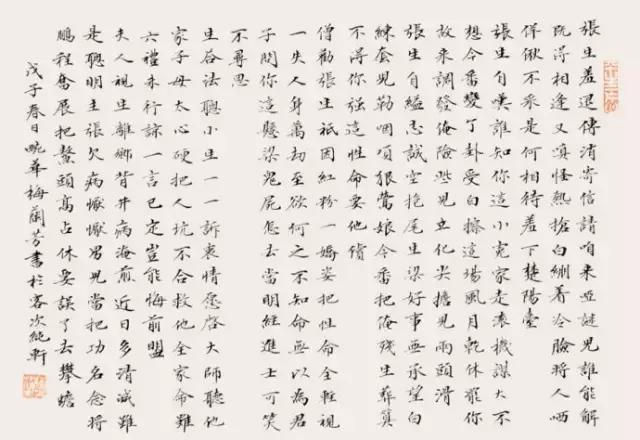 張生羞退傳消寄信請咱來啞謎兒誰能解
既得相逢又嗔怪熱搶白綳着冷臉將人哂
佯僽不乘是何相待羞下楚陽臺
張生自嘆誰知你這小寃家走滾機謀大不
想今番變了卦受白擦這場風月乾休罷你
故來調發俺險些兒立化尖擔兒兩頭滑
張生自縊志誠空抱尾生梁好事無承望白
練套兒勒咽項狠鶯娘今番把俺殘生葬莫
不得你強這性命要他償
僧勸張生祇因紅粉一嬌姿把性命全輕視
一失人身萬劫至欲何之不知命無以為君
子問你這懸梁鬼屍怎去當明經進士可笑
不尋思
生咨法聰小生一一訴衷情愿啓大師聽他
家子母太心硬把人坑不合救他全家命難
六禮未行諒一言已定豈能悔前盟
夫人視生離鄉背井病淹煎近日多清減雖
是聰明主張欠病懨懨男兒當把功名念將
鵬程奮展把鰲頭高占休要誤了去攀蟾
戊子春日畹華梅蘭芳書於客次純軒